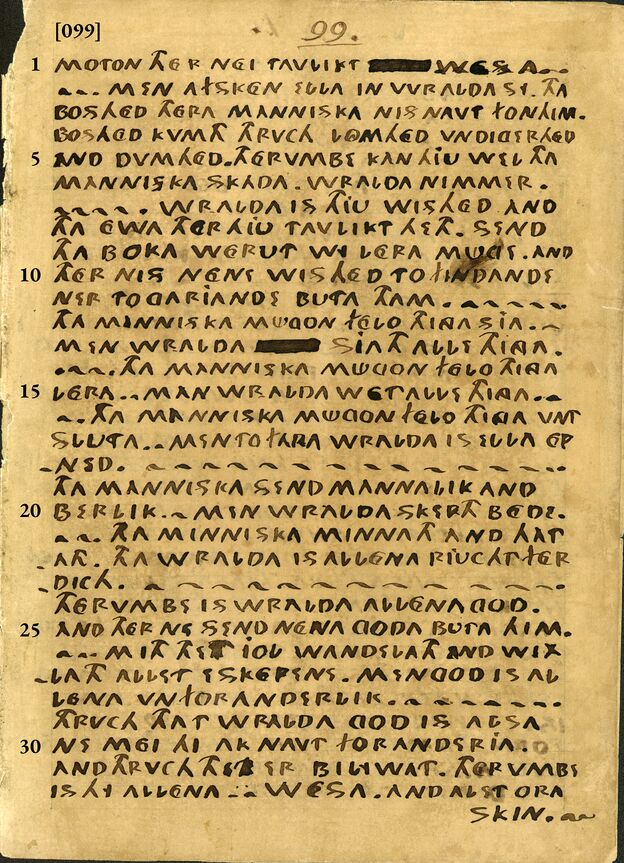 [099]
99.
1 MOTON THER NEI TAVLIKT WESA.
MEN AFSKEN ELLA IN WRALDA SI. THA
BOSHED THERA MANNISKA NIS NAVT FON HIM.
BOSHED KVMTH THRVCH LOMHED VNDIGERHED
5 AND DVMHED. THERVMBE KAN HIU WEL THA
MANNISKA SKADA. WRALDA NIMMER.
WRALDA IS THIU WISHED AND
THA EWA THER HIU TAVLIKT HETH. SEND
THA BOKA WERUT WI LERA MUGE. AND
10 THER NIS NENE WISHED TO FINDANDE
NER TO GARIANDE BUTA THAM.
THA MINNISKA MUGON FELO THINGA SIA.
MEN WRALDA SIATH ALLE THINGA.
THA MANNISKA MUGON FELO THINGA
15 LERA. MAN WRALDA WET ALLE THINGA.
THA MANNISKA MUGON FELO THINGA VNT
SLUTA. MEN TO FARA WRALDA IS ELLA EP
NED.
THA MANNISKA SEND MANNALIK AND
20 BERLIK. MEN WRALDA SKEPTH BEDE.
THA MINNISKA MINNATH AND HAT
ATH. THA WRALDA IS ALLENA RIUCHTFER
DICH.
THERVMBE IS WRALDA ALLENA GOD.
25 AND THER NE SEND NENA GODA BUTA HIM.
MITH THET IOL WANDELATH AND WIX
LATH ALLET ESKEPENE. MEN GOD IS AL
LENA VNFORANDERLIK.
THRUCH THAT WRALDA GOD IS ALSA
30 NE MEI HI AK NAVT FORANDERIA.
AND THRVCH THET ER BILIWAT. THERVMBE
IS HI ALLENA WESA. AND ALET ORA
SKIN.